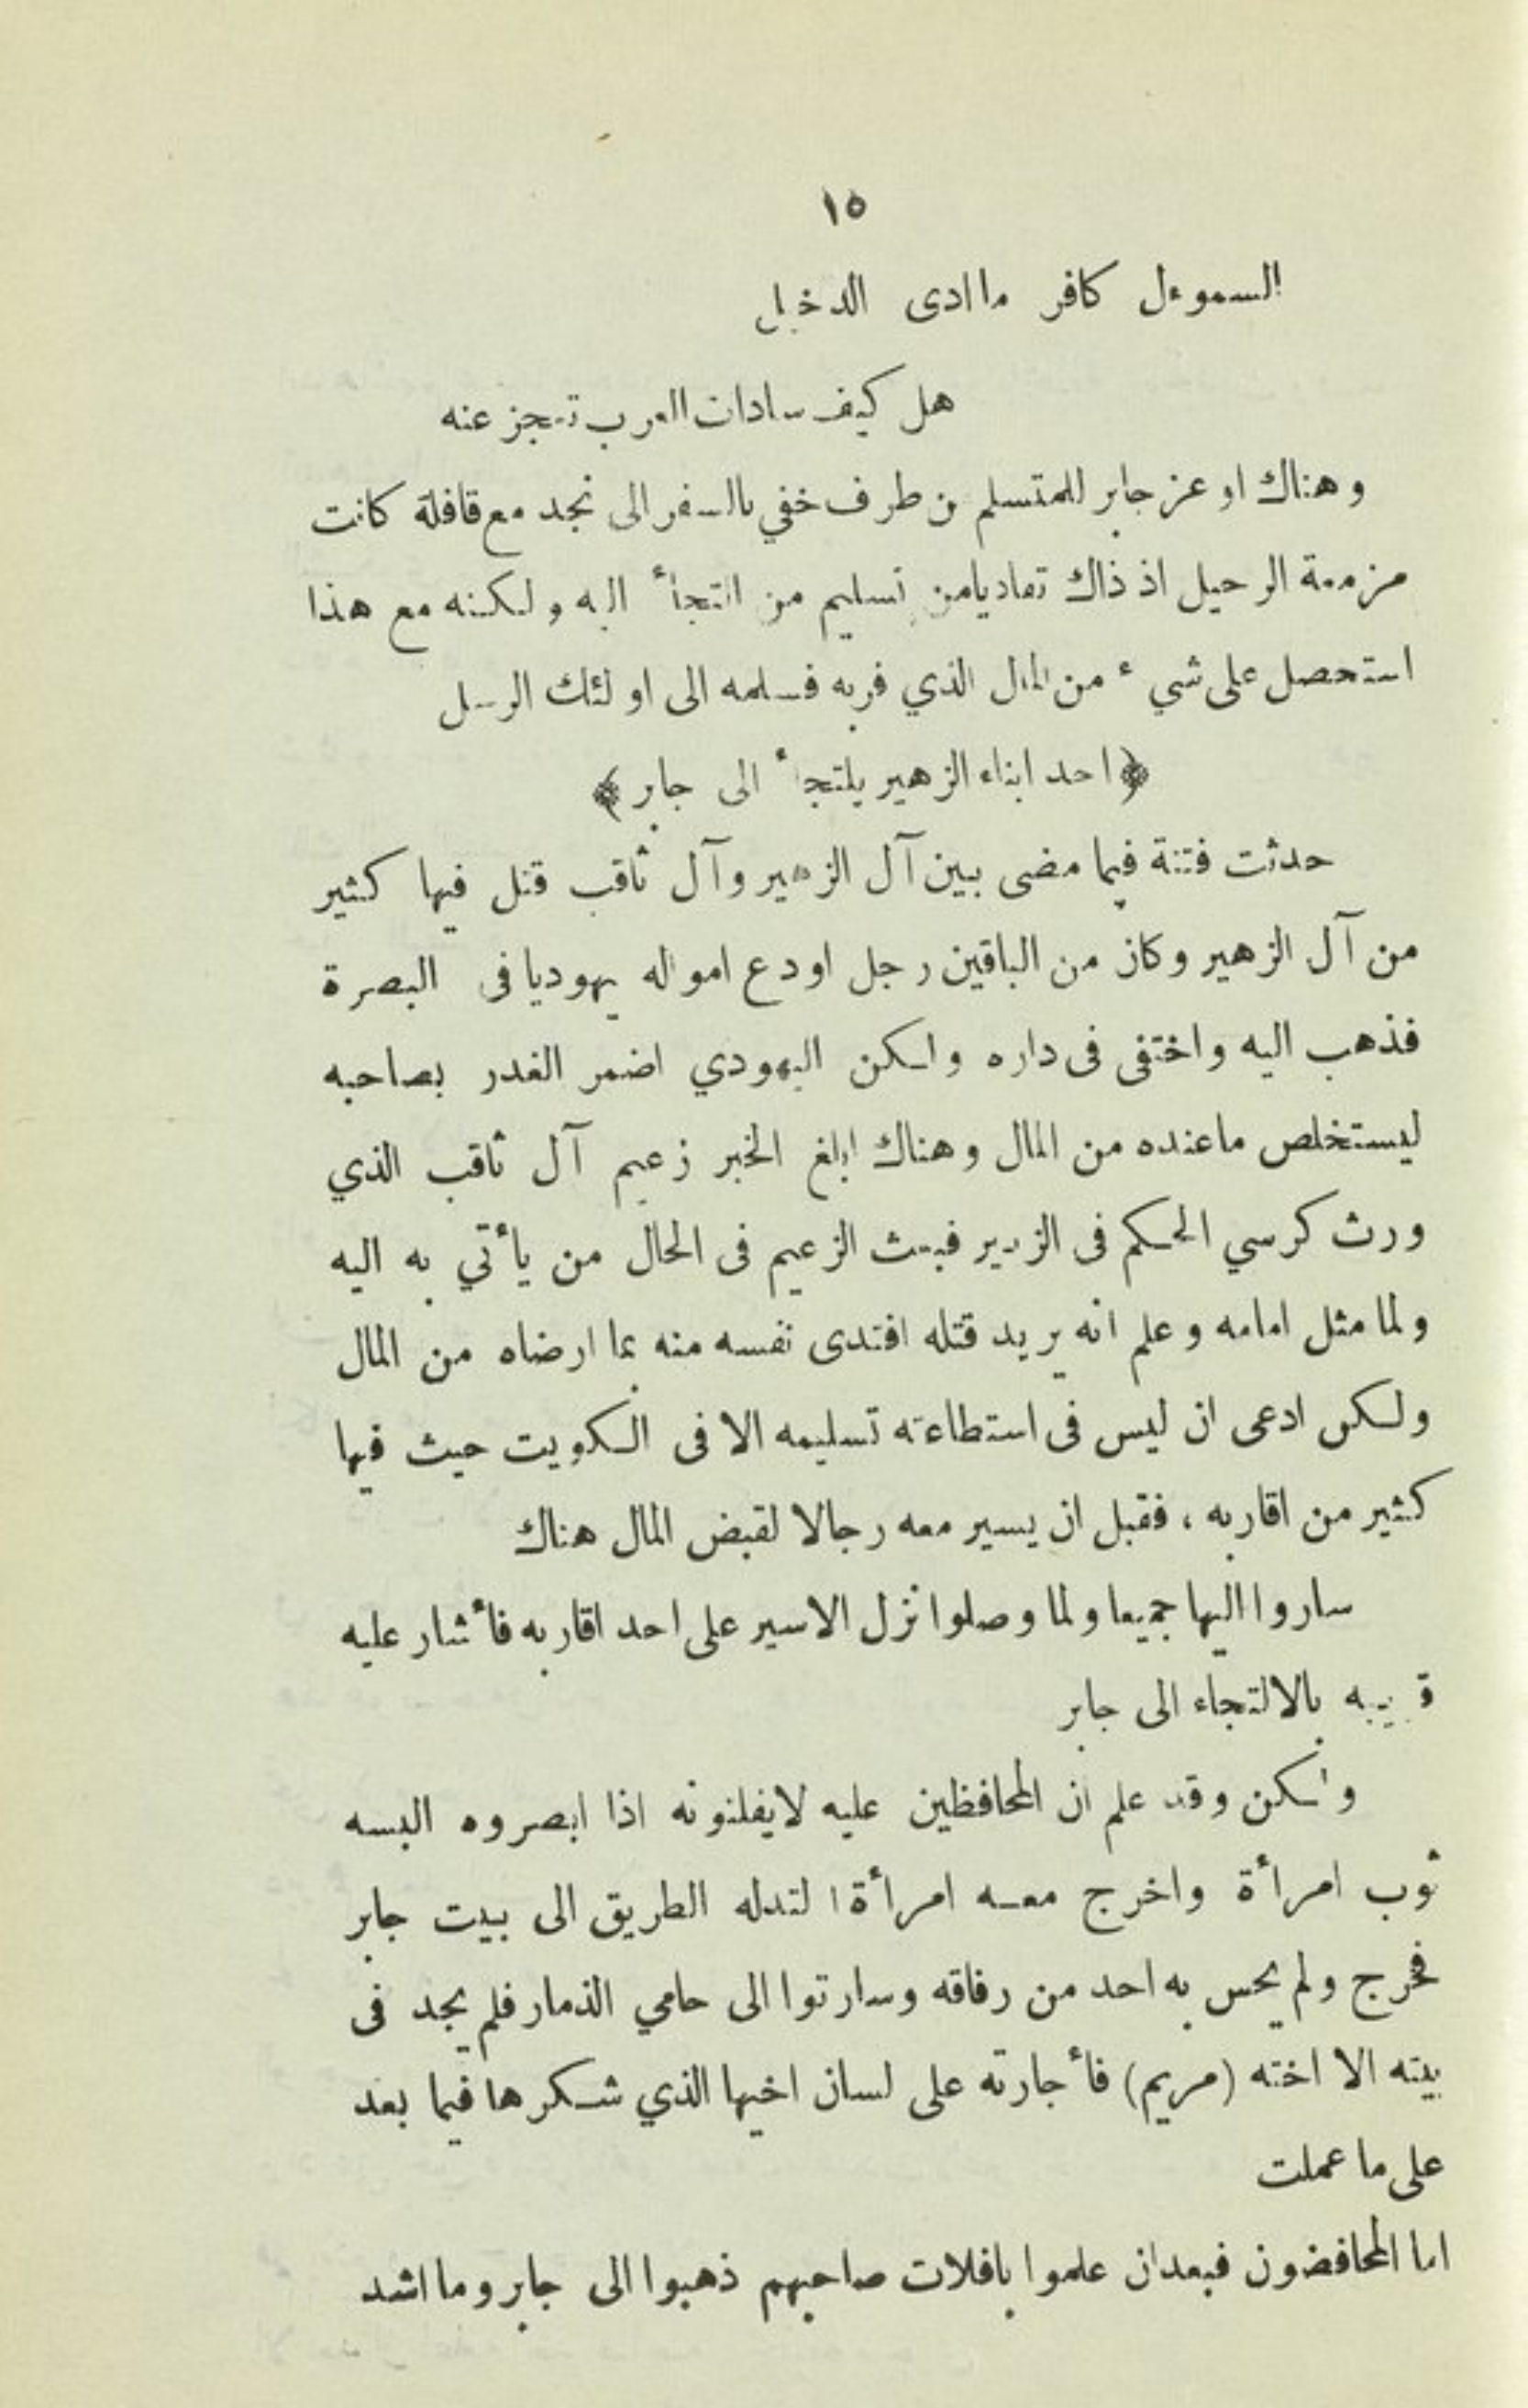 ١٥
السموءل كافر ماادى الدخيل
هل كيف سادات العرب تعجز عنه
وهناك اوعز جابر للمتسلم من طرف خفي بالسفر الى نجد مع قافلة كانت
مزمعة الرحيل اذ ذاك تفاديا من تسليم من التجأ اليه ولكنه مع هذا
استحصل على شيء من المال الذي فر به فسلمه الى اولئك الرسل
﴿احد ابناء الزهير يلتجأ الى جابر﴾
حدثت فتنة فيما مضى بين آل الزهير وآل ثاقب قتل فيها كثير
من آل الزهير وكان من الباقين رجل اودع امواله يهوديا فى البصرة
فذهب اليه واختفى فى داره ولكن اليهودي اضمر الغدر بصاحبه
ليستخلص ماعنده من المال وهناك ابلغ الخبر زعيم آل ثاقب الذي
ورث كرسي الحكم فى الزبير فبعث الزعيم فى الحال من يأتي به اليه
ولما مثل امامه وعلم انه يريد قتله افتدى نفسه منه بما ارضاه من المال
ولكن ادعى ان ليس فى استطاعته تسليمه الا فى الكويت حيث فيها
كثير من اقاربه ، فقبل ان يسير معه رجالا لقبض المال هناك
ساروا اليها جميعا ولما وصلوا نزل الاسير على احد اقاربه فأشار عليه
قريبه بالالتجاء الى جابر
ولكن وقد علم ان المحافظين عليه لايفلتونه اذا ابصروه البسه
ثوب امرأة واخرج معه امرأة ا لتدله الطريق الى بيت جابر
فخرج ولم يحس به احد من رفاقه وسار توا الى حامي الذمار فلم يجد فى
بيته الا اخته (مريم) فأجارته على لسان اخيها الذي شكرها فيما بعد
على ما عملت
اما المحافضون فبعد ان علموا بافلات صاحبهم ذهبوا الى جابر وما اشد